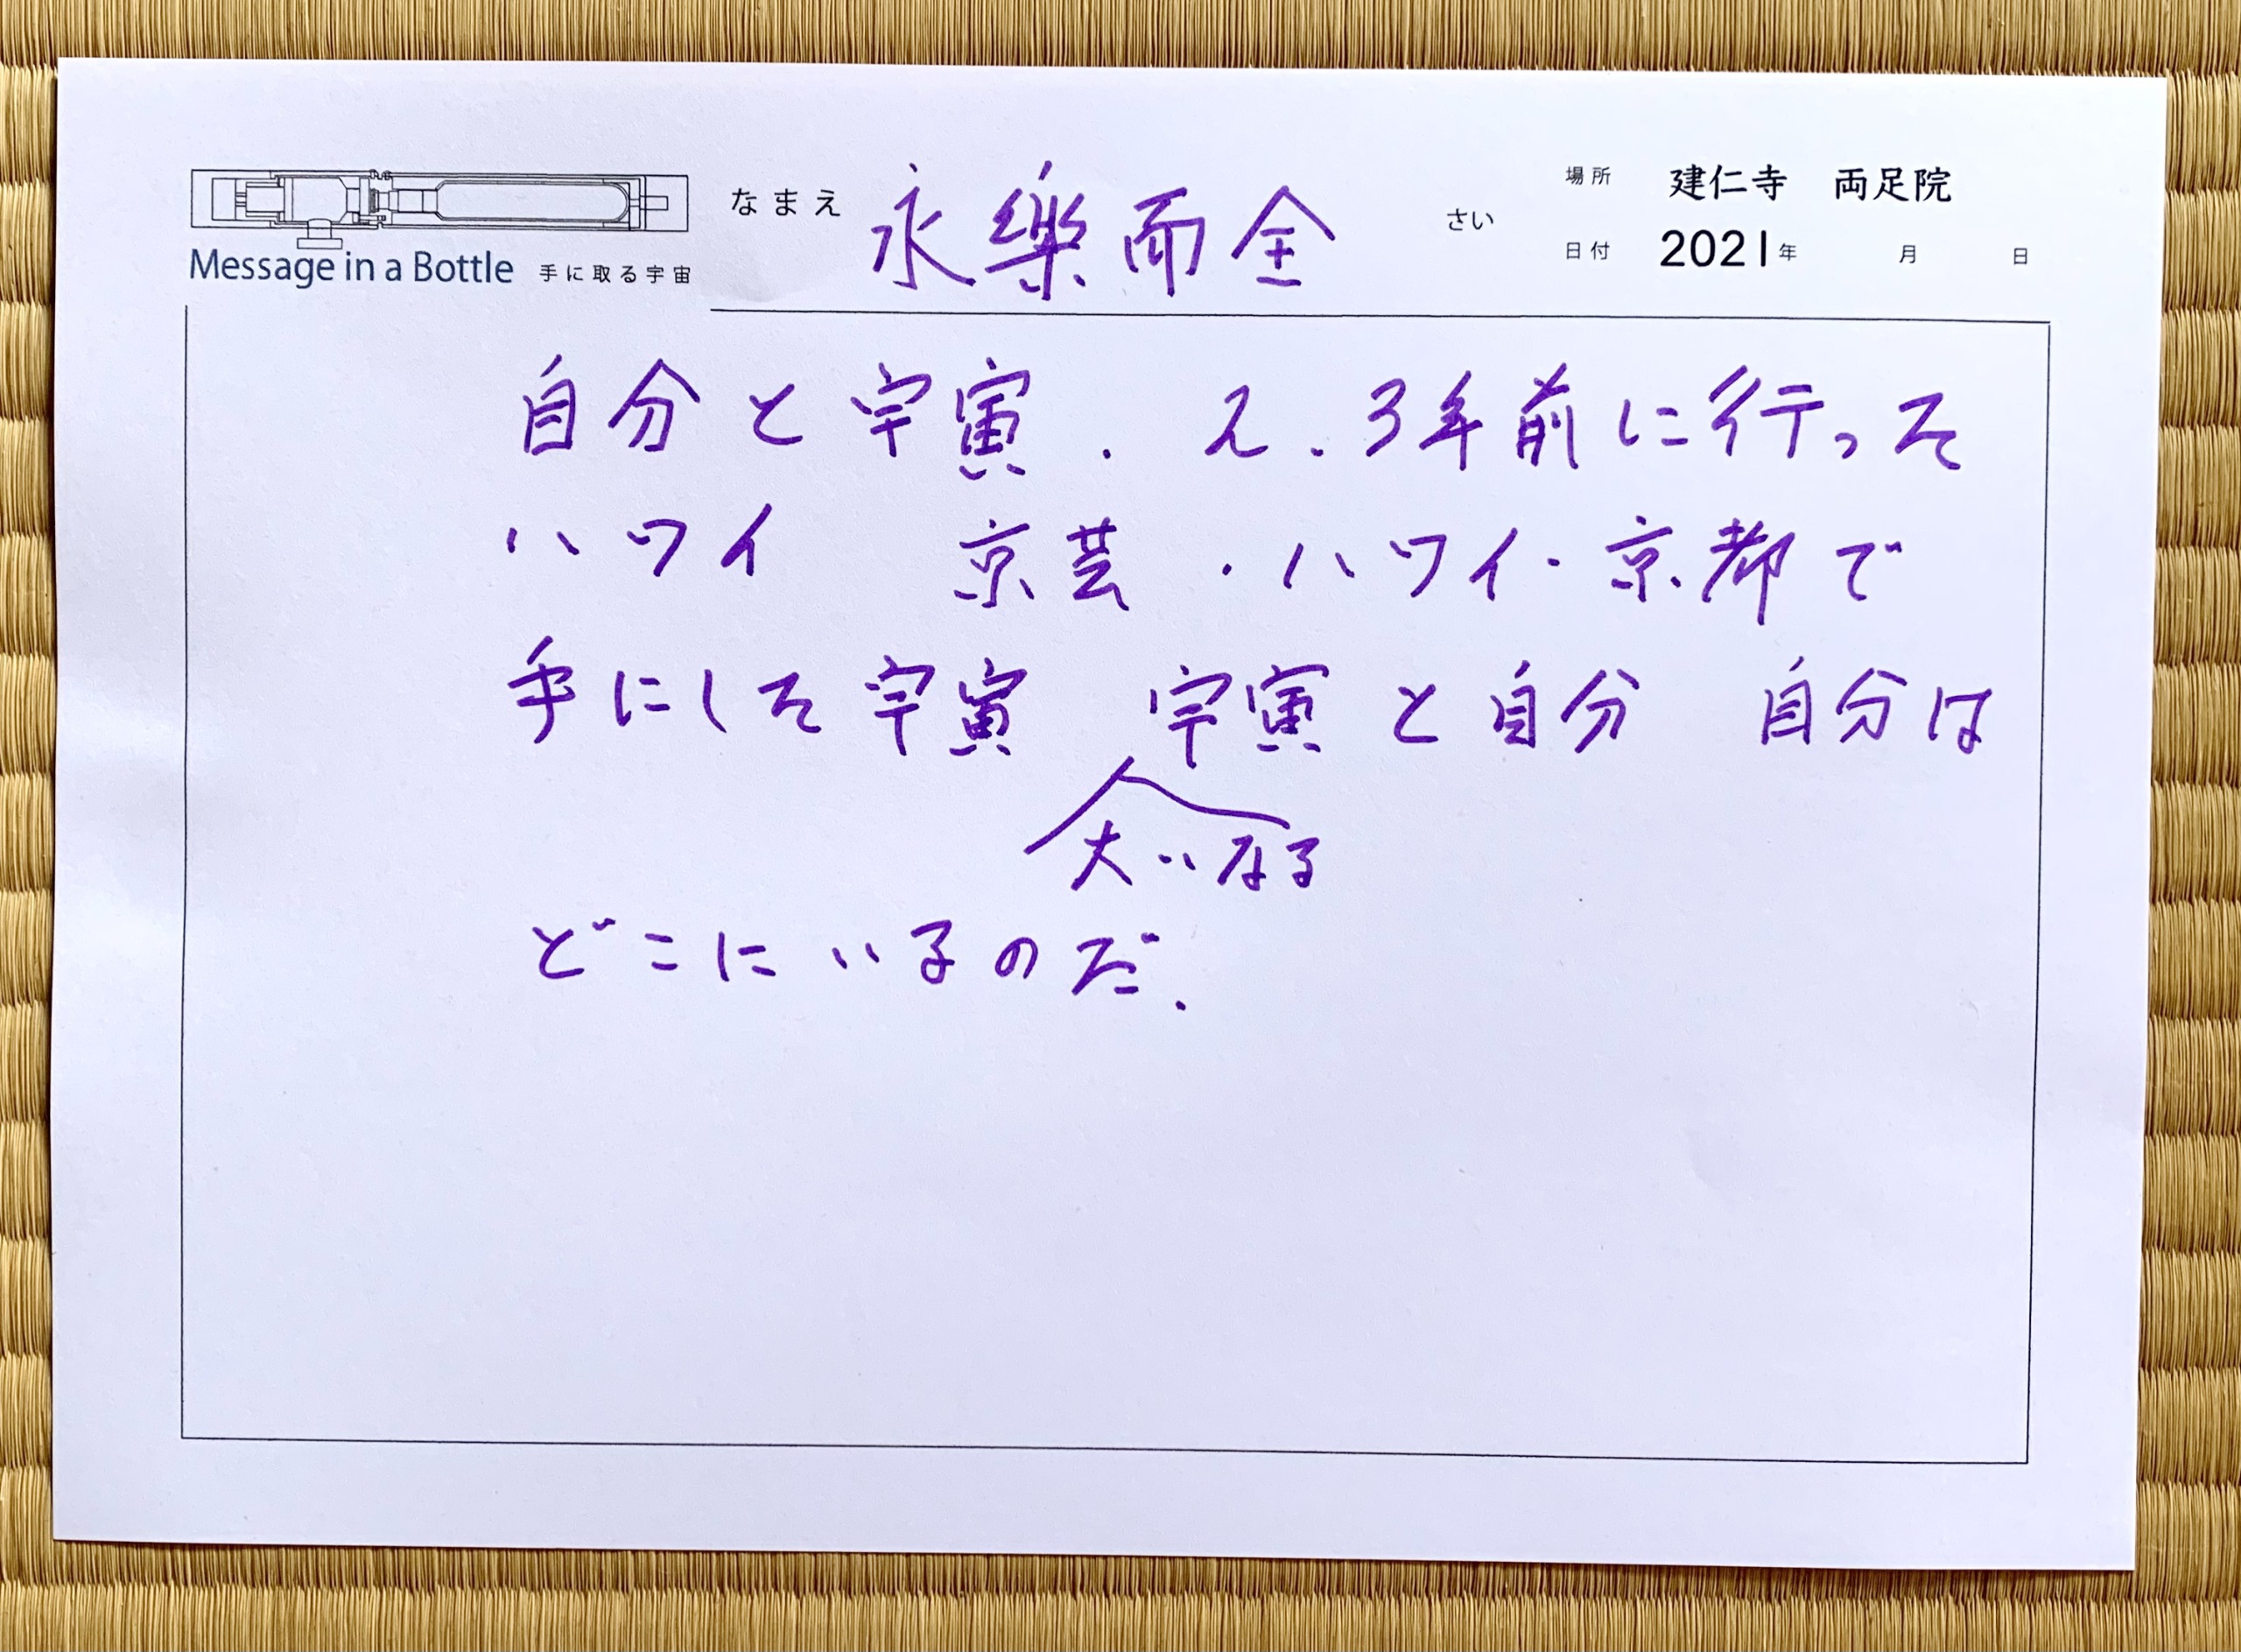 なまえ 永樂而全 さい
場所 建仁寺 両足院
日付 2021年 月 日
Message in a Bottle 手に取る宇宙
自分と宇寅. 2.3年前に行った
ハワイ 京芸・ハワイ・京都で
手にした宇寅 宇寅と自分 自分は
大いなる
どこにいるのだ.